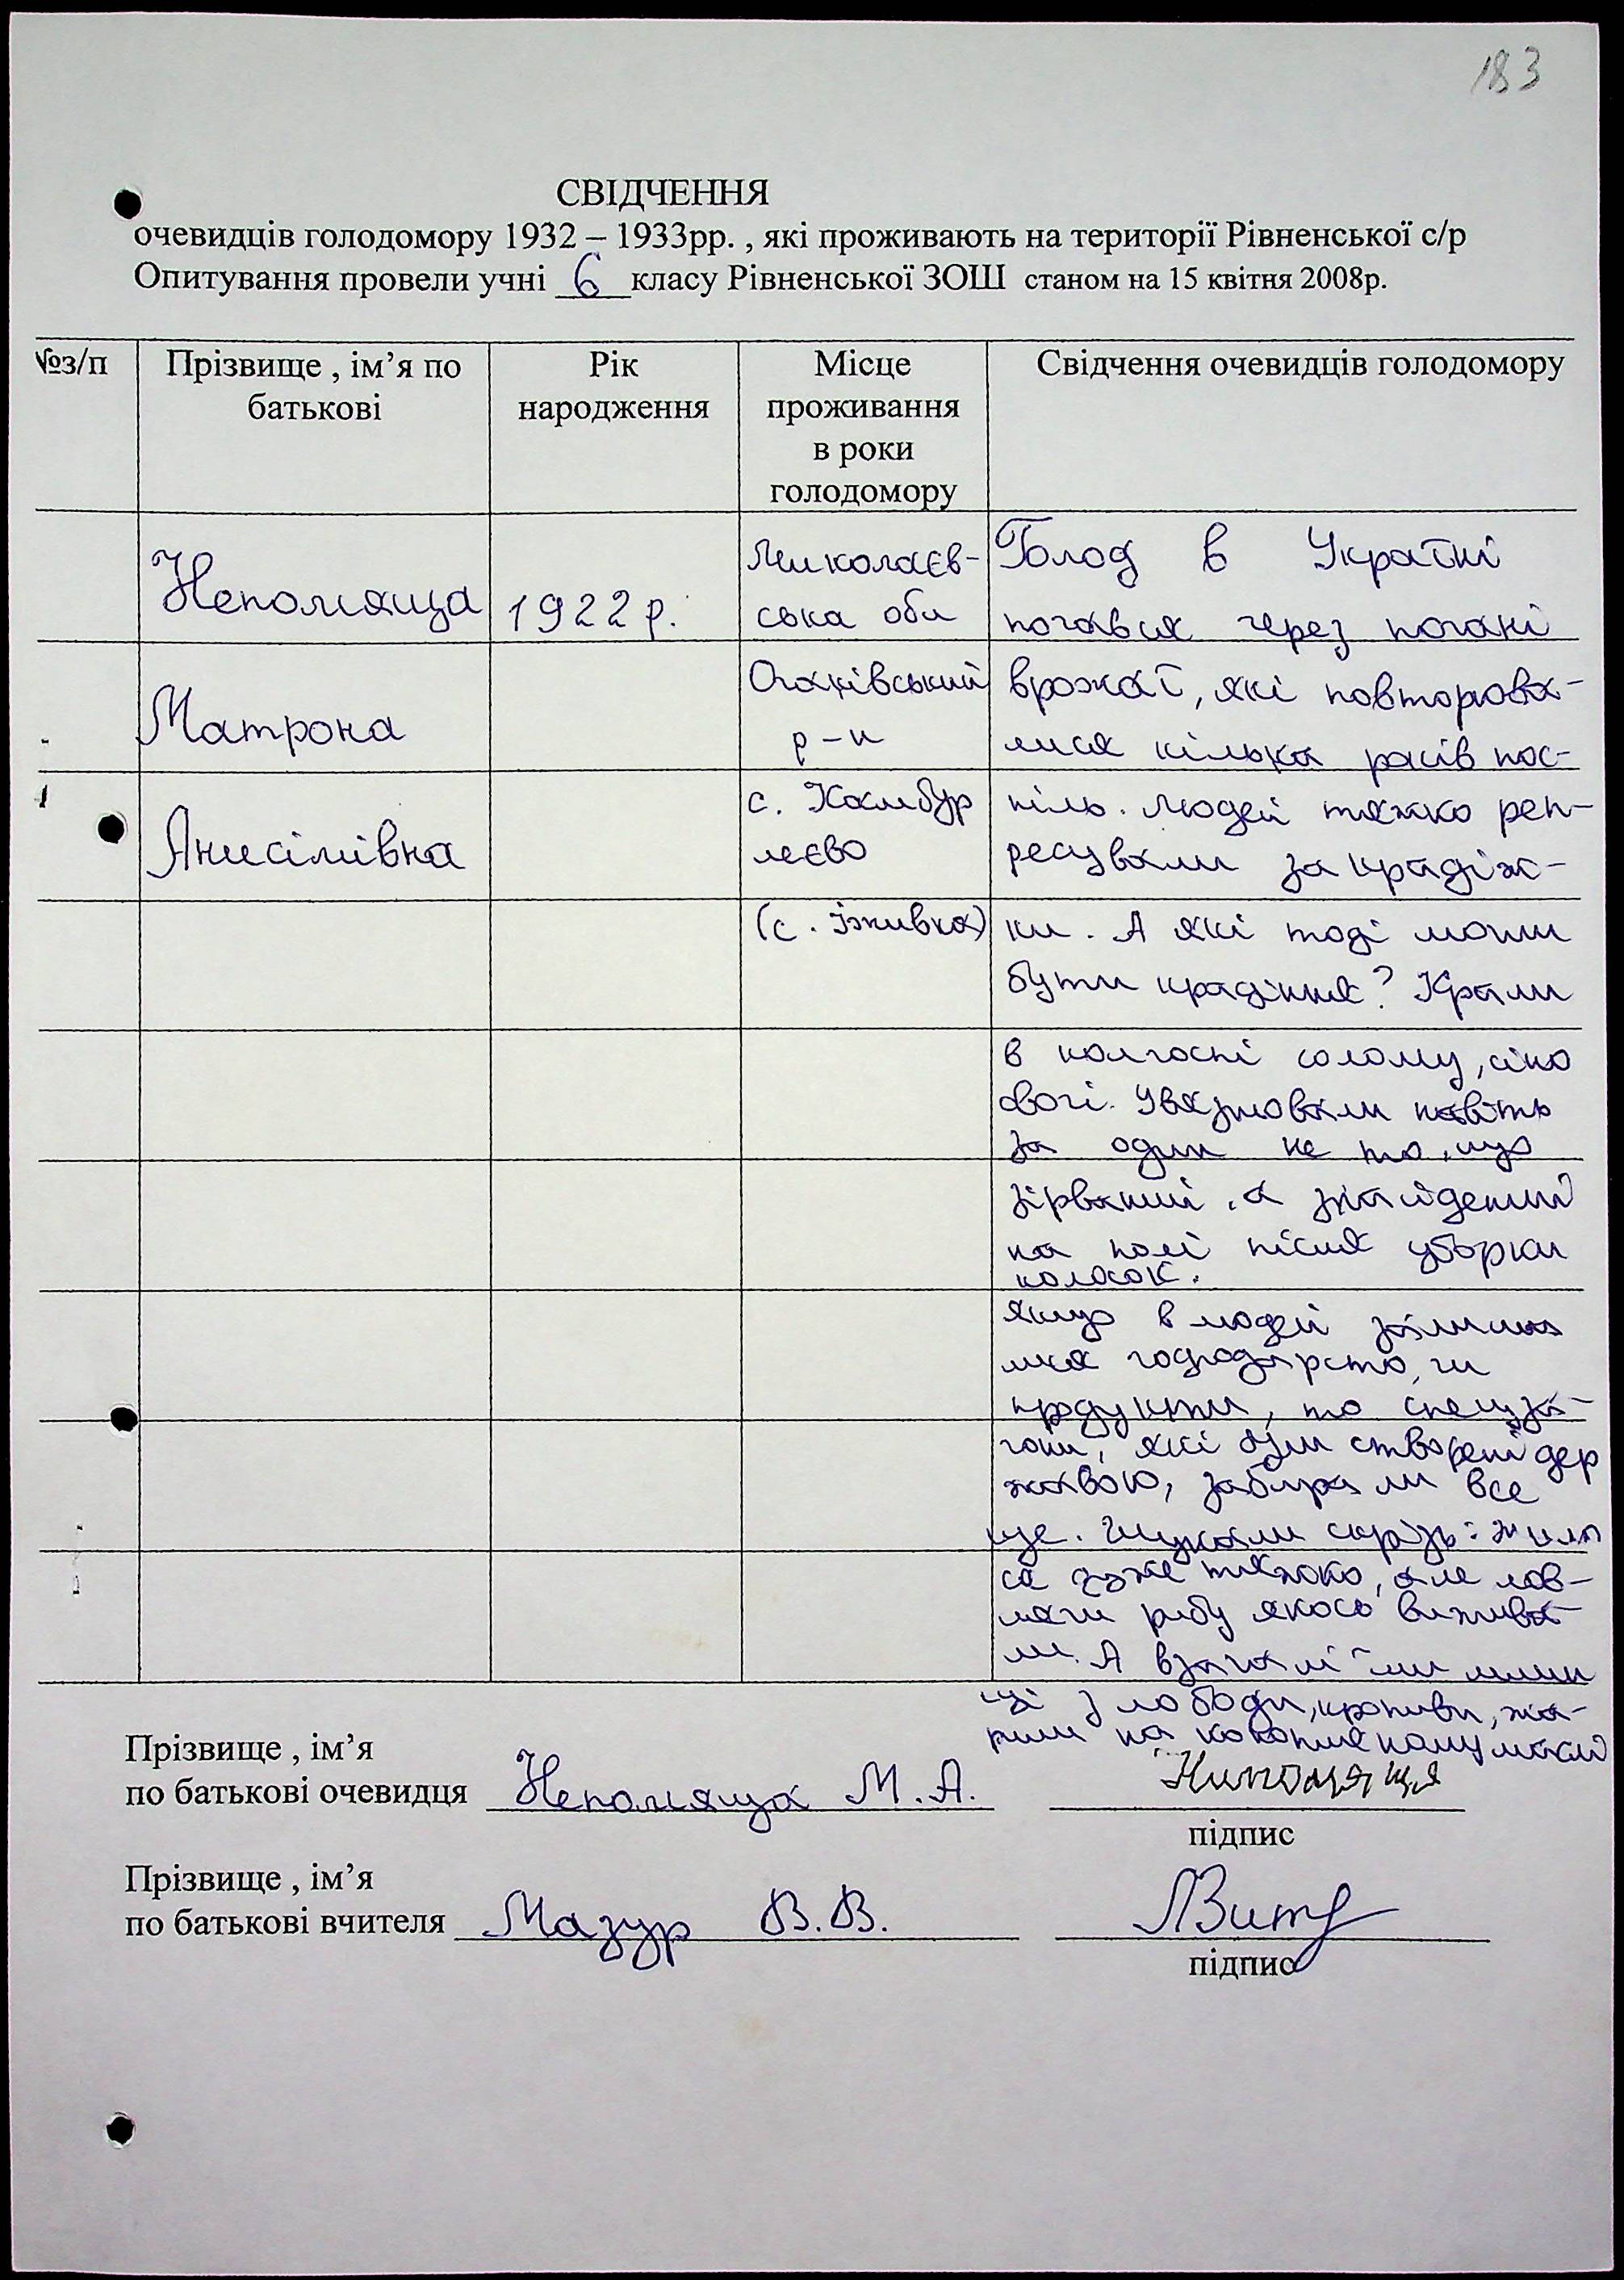 183
СВІДЧЕННЯ
очевидців голодомору 1932 – 1933рр. , які проживають на території Рівненської с/р
Опитування провели учні 6 класу Рівненської ЗОШ станом на 15 квітня 2008р.
№з/п
Прізвище , ім’я по
батькові
Рік
народження
Місце
проживання
в роки
голодомору
Свідчення очевидців голодомору
Непомяща
Матрона
Анисімівна
1922 р.
Миколаєв-
ська обл
Очаківський
р-н
с. Камбур
леєво
(с. Їживка)
Голод в Україні
почався через погані
врожаї, які повторюва-
лися кілька разів пос-
піль. Людей тяжко реп-
ресували за крадіж-
ки. А які тоді могли
бути крадіжки? Крали
в колгоспі солому, сіно
овочі. Увязнювали навіть
за один не то, що
зірваний, а знайдений
на полі після уборки
колосок.
Якщо в людей залиша
лися господарсто, чи
продукти, то спецза-
гони, які були створені дер
жавою, забирали все
це. Шукали скрізь: жила
ся дуже тяжко, але лов-
лячи рибу якось вижива-
ли. А взагалі їли млин
ці з лободи, кропиви, жа-
рили на конопляному маслі
Прізвище , ім’я
по батькові очевидця Непомяща М.А.
Нипомяща
підпис
Прізвище , ім’я
по батькові вчителя Мазур В.В.
підпис